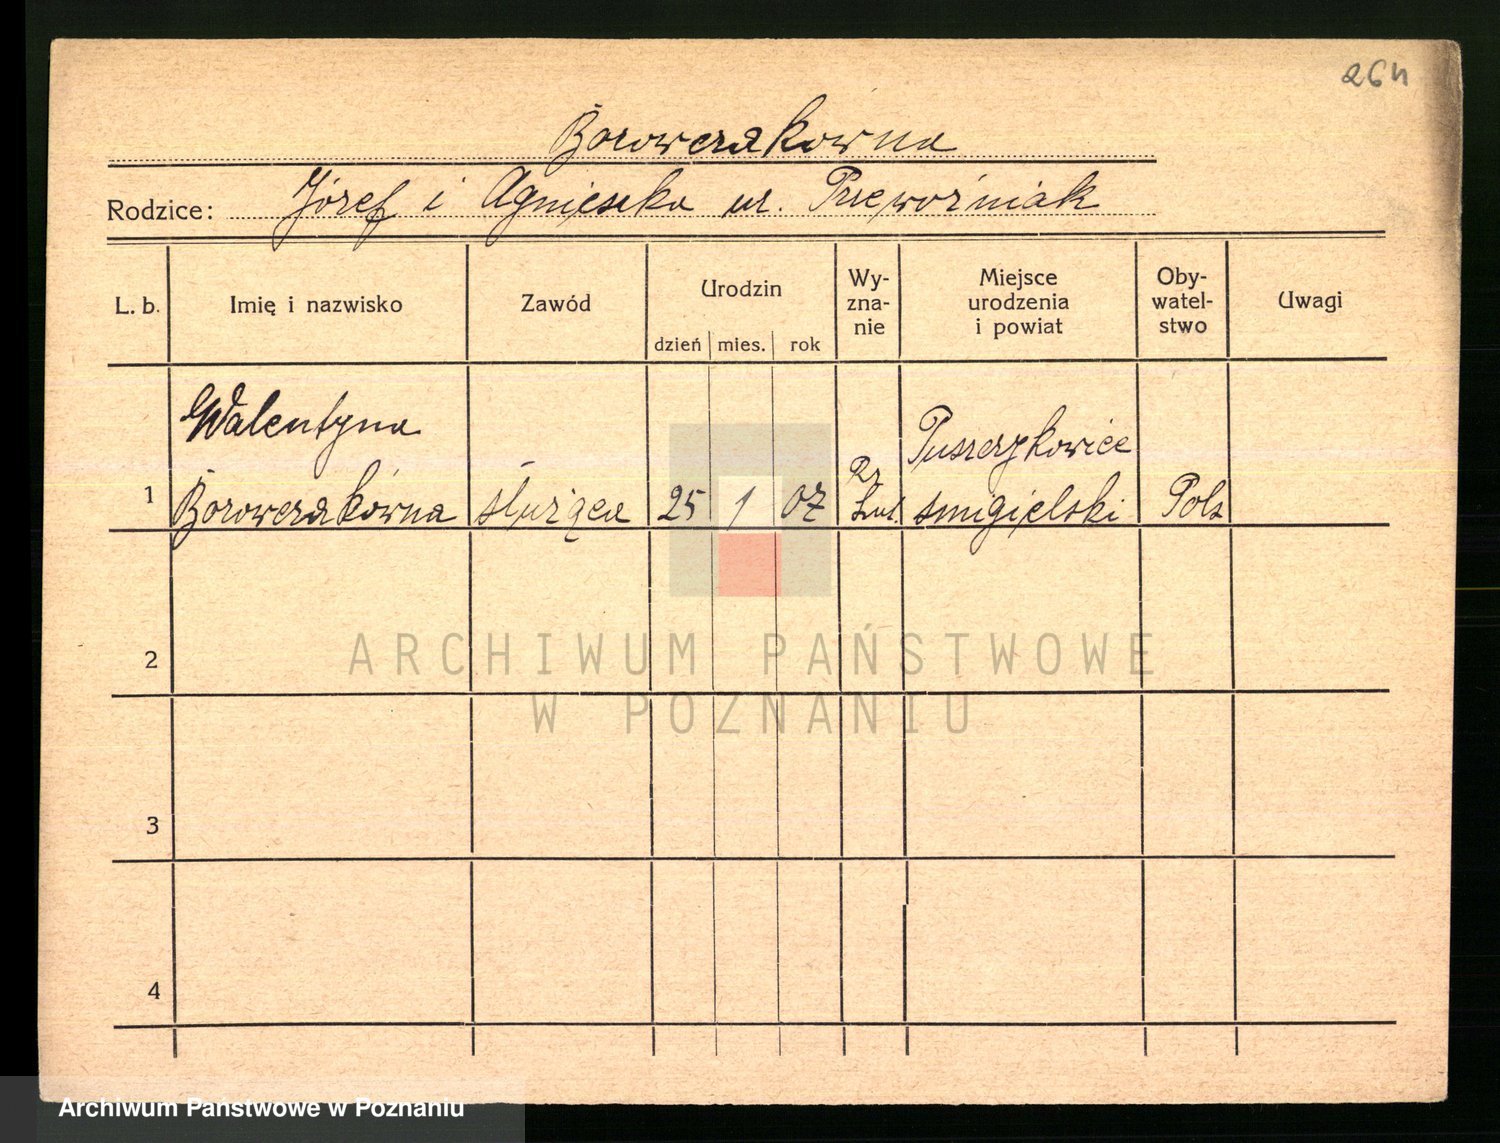 264
Borowczakówna
Rodzice: Józef i Agnieszka ur. Przewoźniak
L. b. Imię i nazwisko Zawód Urodzin dzień mies. rok Wy-zna-nie Miejsce urodzenia i powiat Oby-watel-stwo Uwagi
Walentyna Puszczykowice
1 Borowczakówna służąca 25 1 07 Rz kat. smigielski Pols
2
ARCHIWUM PAŃSTWOWE
W POZNANIU
3
4
Archiwum Państwowe w Poznaniu